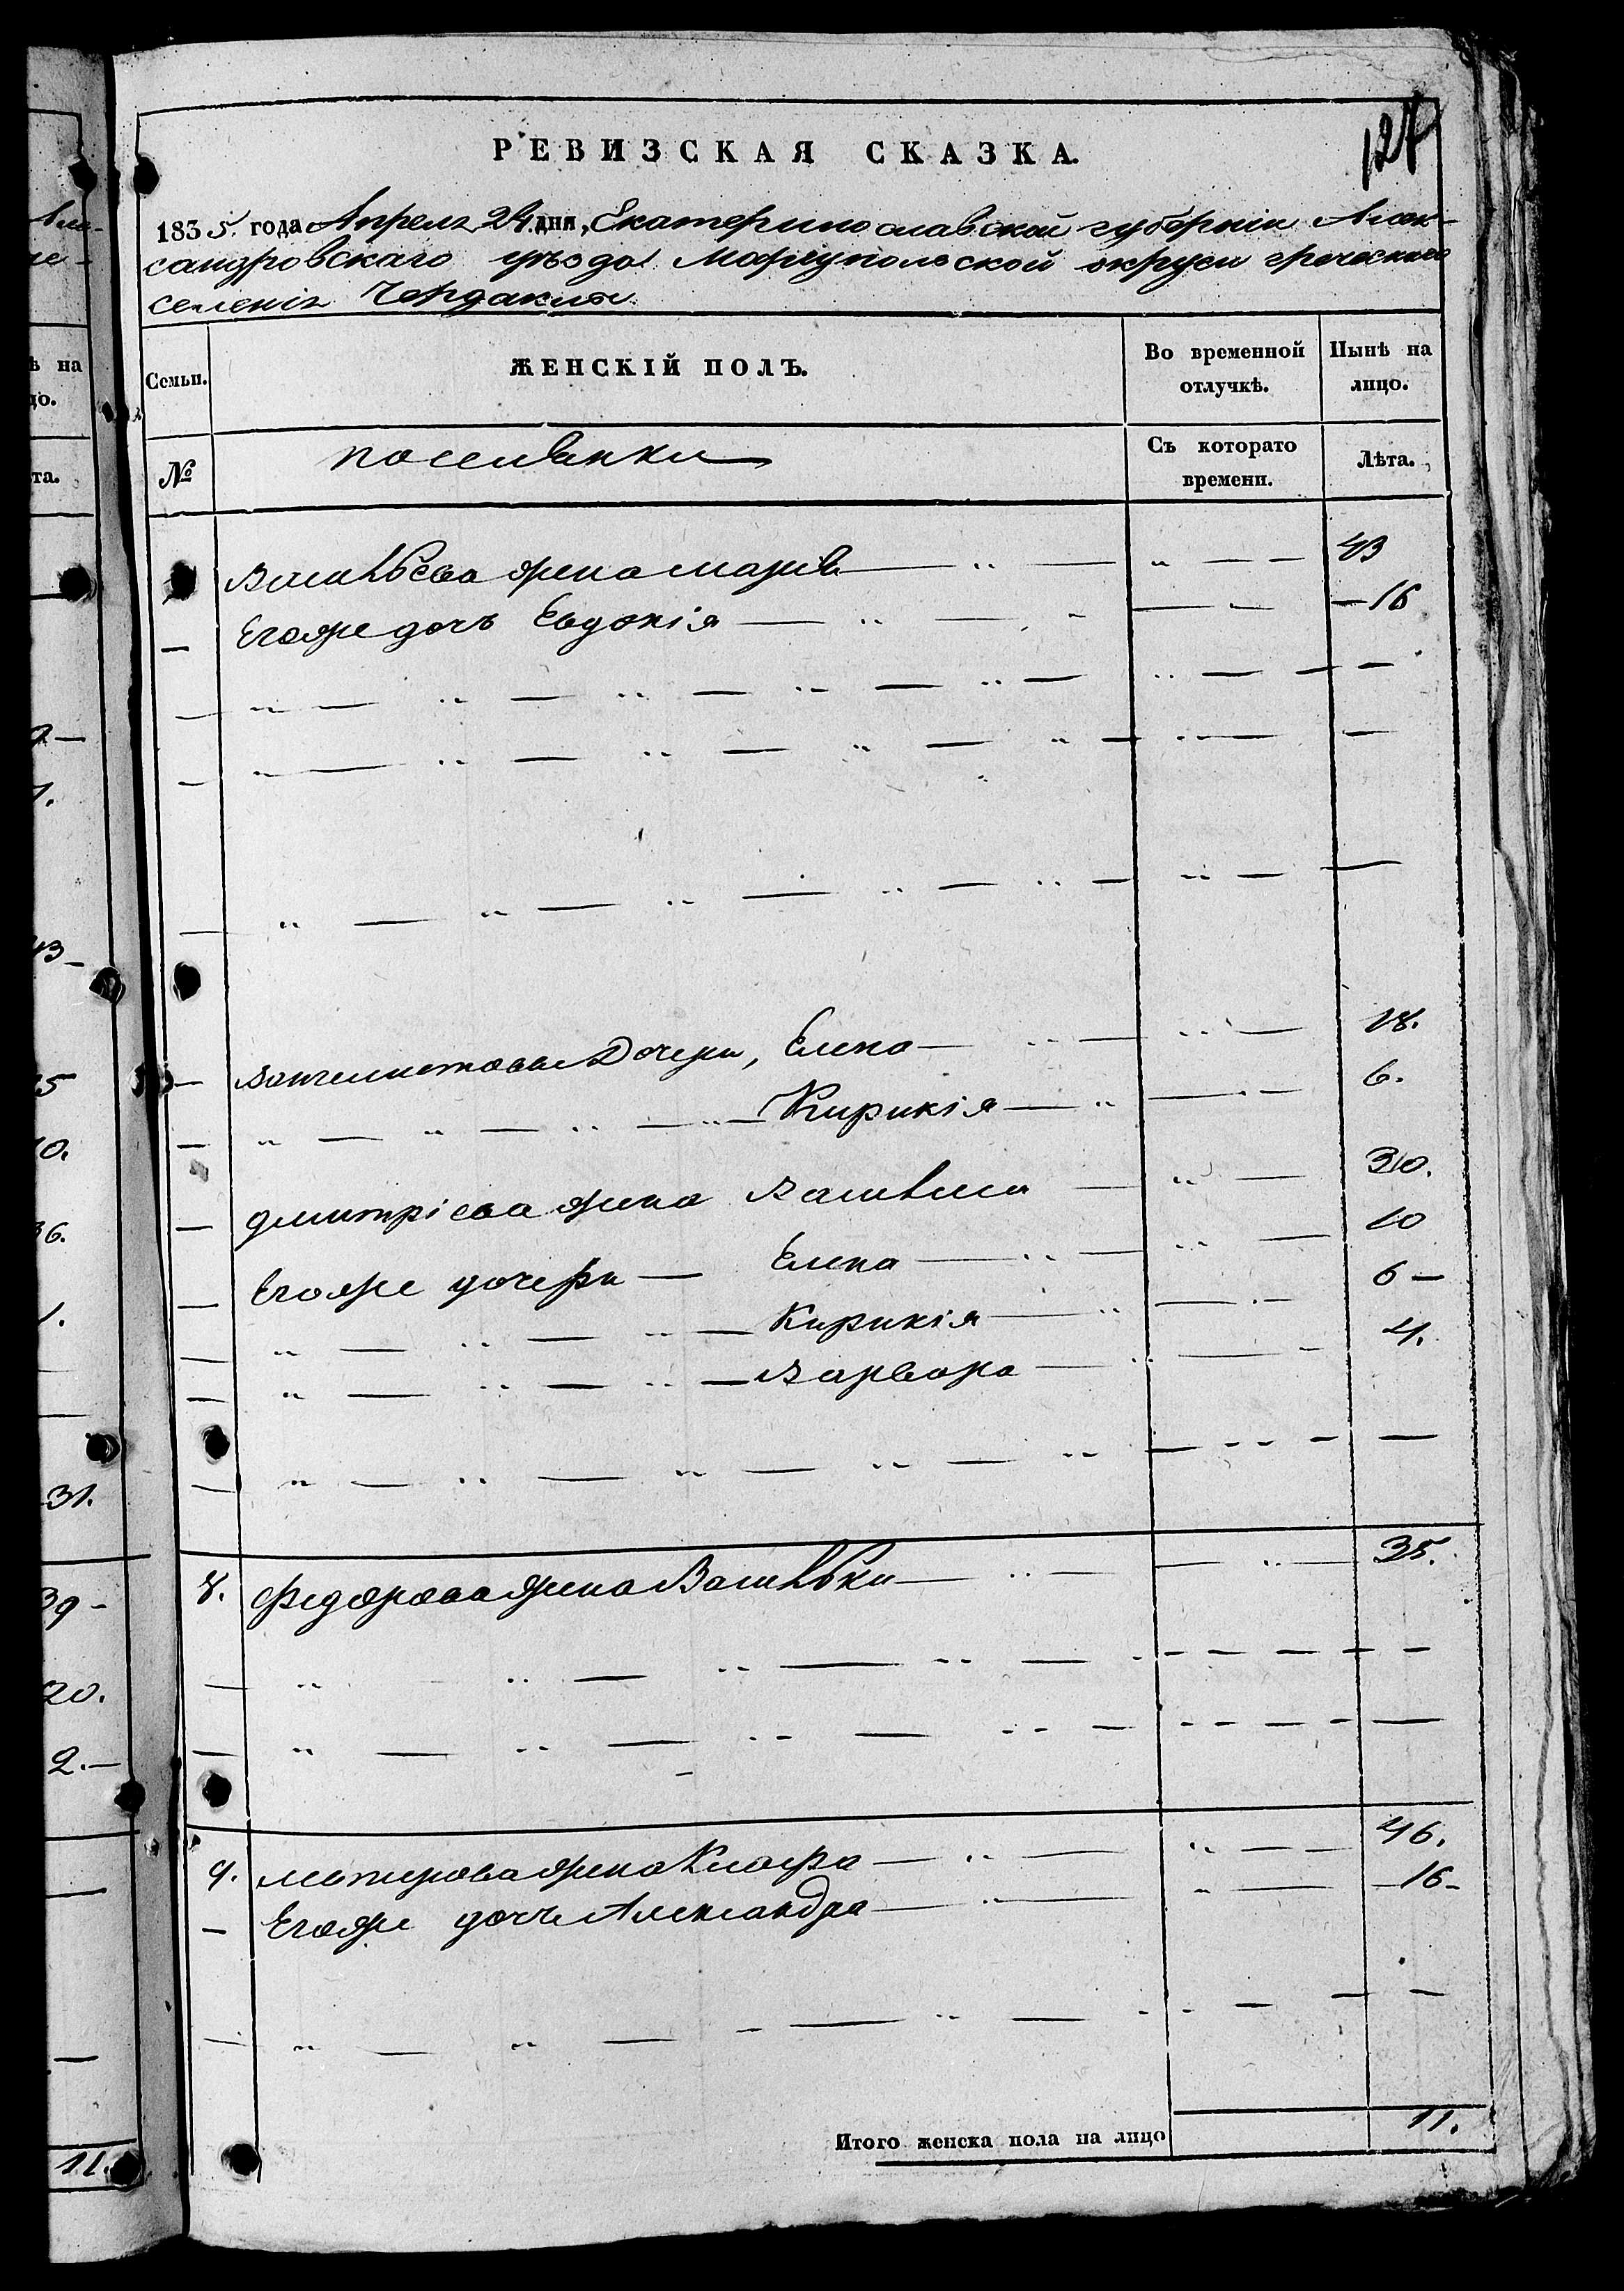 127
РЕВИЗСКАЯ СКАЗКА.
1835. года Апреля 24 дня, Екатеринославской губерніи Алек-
сандровскаго уѣзда Маріупольской округи греческаго
селенія Чердаклы
Семьи. ЖЕНСКІЙ ПОЛЪ. Во временной отлучкѣ. Нынѣ на лицо.
№ поселянки Съ котораго времени. Лѣта.
Васильева жена Марія 43
Егоже дочь Евдокія 16
Дочери, Елена 18.
Кирикія 6.
Дмитріева жена Василиса 30.
Егоже дочери Елена 10
Кирикія 6
Варвара 4.
8. Федорова жена Васильки 35.
9. жена Киафа 46.
Егоже дочь Александра 16
Итого женска пола на лицо 11.
31.
39
20.
2.
11.